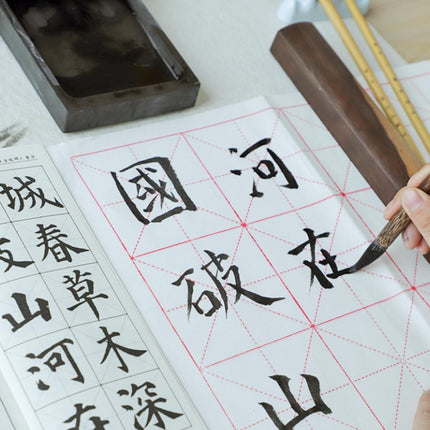 山河在
城春草木深
國破山
河在